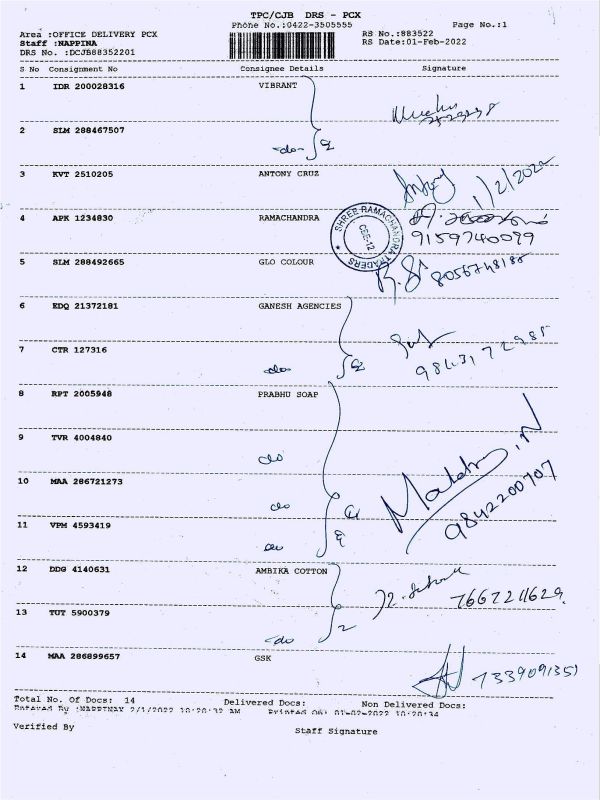 TPC/CJB DRS - PCX
Phone No.:0422-3505555 Page No.:1
Area :OFFICE DELIVERY PCX RS No.:883522
Staff :NAPPINA RS Date:01-Feb-2022
DRS No. :DCJB88352201
S No Consignment No Consignee Details Signature
1 IDR 200028316 VIBRANT
2 SLM 288467507
-do-
3 KVT 2510205 ANTONY CRUZ
1/2/2022
4 APK 1234830 RAMACHANDRA
SHREE RAMACHANDRA TRADERS
CBE-12
9159740099
5 SLM 288492665 GLO COLOUR
8056748188
6 EDQ 21372181 GANESH AGENCIES
7 CTR 127316
do
9843172985
8 RPT 2005948 PRABHU SOAP
9 TVR 4004840
do
10 MAA 286721273
do
9842200707
11 VPM 4593419
do
12 DDG 4140631 AMBIKA COTTON
7667211629
13 TUT 5900379
do
2
14 MAA 286899657 GSK
7339091351
Total No. Of Docs: 14 Delivered Docs: Non Delivered Docs:
Entered By :NAPPINAY 2/1/2022 10:20:32 AM Printed On: 01-02-2022 10:20:34
Verified By Staff Signature